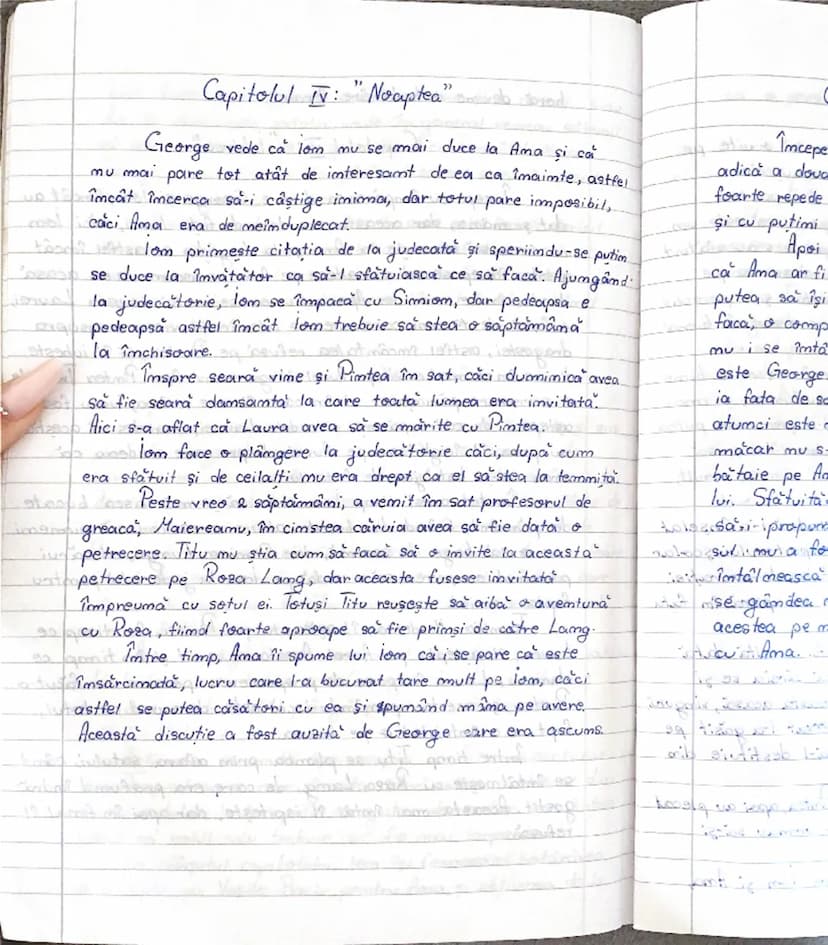 Capitolul IV: "Noaptea"
George vede că Ion nu se mai duce la Ana și că
nu mai pare tot atât de interesant de ea ca înainte, astfel
încât încerca să-i câștige inima, dar totul pare imposibil,
căci Ana era de neînduplecat.
Ion primește citația de la judecată și speriindu-se puțin
se duce la învățător ca să-l sfătuiască ce să facă. Ajungând
la judecătorie, Ion se împacă cu Simion, dar pedeapsa e
pedeapsă astfel încât Ion trebuie să stea o săptămână
la închisoare.
Înspre seară vine și Pintea în sat, căci duminică avea
să fie seară dansantă la care toată lumea era invitată.
Aici s-a aflat că Laura avea să se mărite cu Pintea.
Ion face o plângere la judecătorie căci, după cum
era sfătuit și de ceilalți nu era drept ca el să stea la temniță.
Peste vreo 2 săptămâni, a venit în sat profesorul de
greacă, Maiereanu, în cinstea căruia avea să fie dată o
petrecere. Titu nu știa cum să facă să o invite la această
petrecere pe Roza Lang, dar aceasta fusese invitată
împreună cu soțul ei. Totuși Titu reușește să aibă o aventură
cu Roza, fiind foarte aproape să fie prinși de către Lang.
Între timp, Ana îi spune lui Ion că i se pare că este
însărcinată, lucru care l-a bucurat tare mult pe Ion, căci
astfel se putea căsători cu ea și punând mâna pe avere.
Această discuție a fost auzită de George care era ascuns.
Începe
adică a doua
foarte repede
și cu puțini
Apoi
că Ana ar fi
putea să își
facă, o comp
nu i se întâ
este George
ia fata de so
atunci este
măcar nu s-
bătaie pe An
lui. Sfătuită
să-i propun
sul nu a fo
întâlnească
se gândea
acestea pe m
cu Ana.